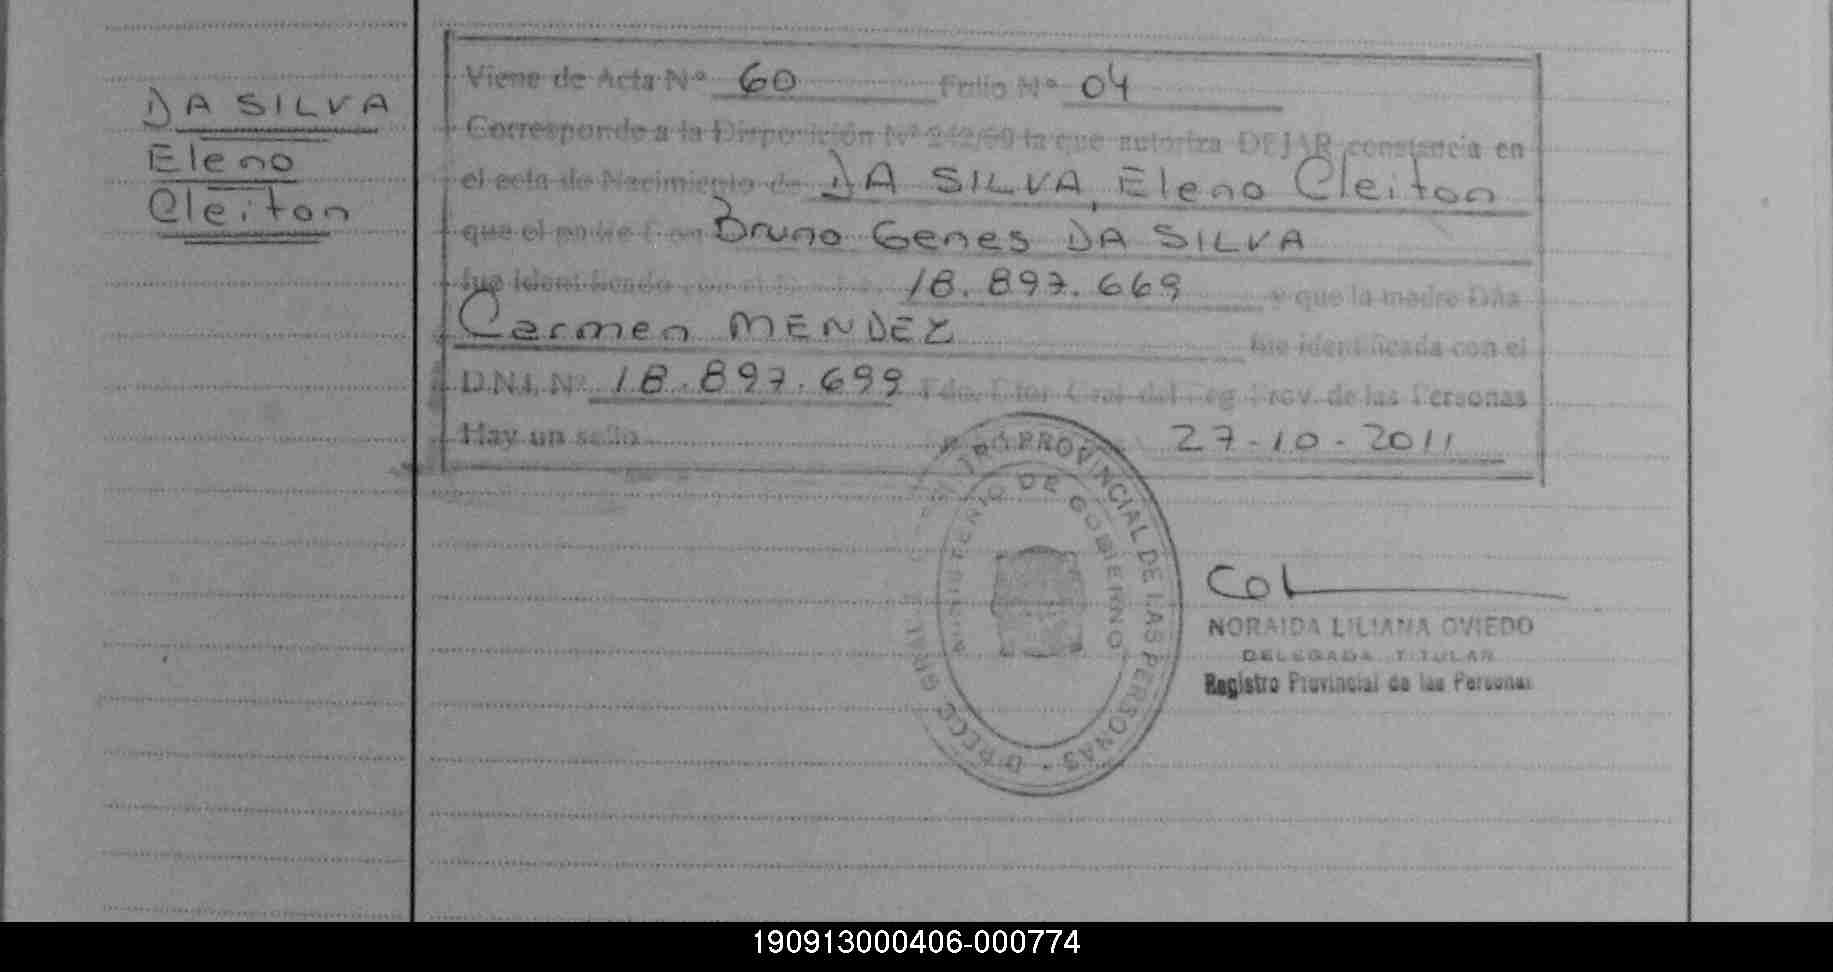 DA SILVA
Eleno
Cleiton
Viene de Acta Nº 60 Folio Nº 04
Corresponde a la Disposición Nº 242/99 la que autoriza DEJAR constancia en
el acta de Nacimiento de DA SILVA, Eleno Cleiton
que el padre Don Bruno Genes DA SILVA
fue identificado 18.897.669 y que la madre Dña
Carmen MENDEZ fue identificada con el
D.N.I. Nº 18.897.699 Fdo. Dtor. Gral del Reg. Prov. de las Personas
Hay un sello 27-10-2011
PROVINCIAL DE LAS PERSONAS
MINISTERIO DE GOBIERNO
NORAIDA LILIANA OVIEDO
DELEGADA TITULAR
Registro Provincial de las Personas
190913000406-000774